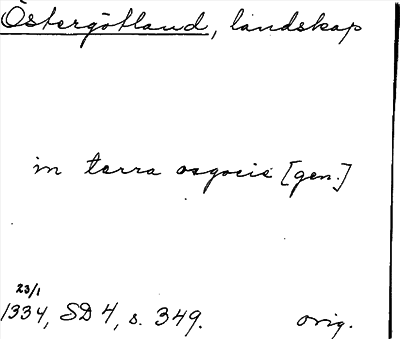 Östergötland, landskap
in terra osgocie [gen.]
23/1
1334, SD 4, s. 349. orig.